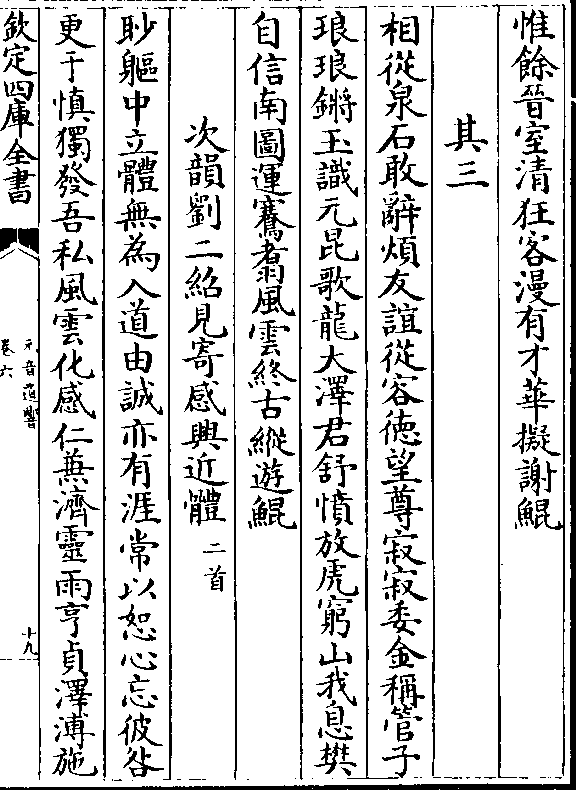 惟餘晉室清狂客漫有才華擬謝鯤
其三
相從泉石敢辭煩友誼從容徳望尊寂寂委金稱管子
琅琅鏘玉識元昆歌龍大澤君舒憤放虎窮山我息樊
自信南圖運騫翥風雲終古縱遊鯤
次韻劉二紹見寄感興近體二首
眇軀中立體無為入道由誠亦有涯常以恕心忘彼咎
更于慎獨發吾私風雲化感仁兼濟靈雨亨貞澤溥施
欽定四庫全書
元音遺響
卷六
十九